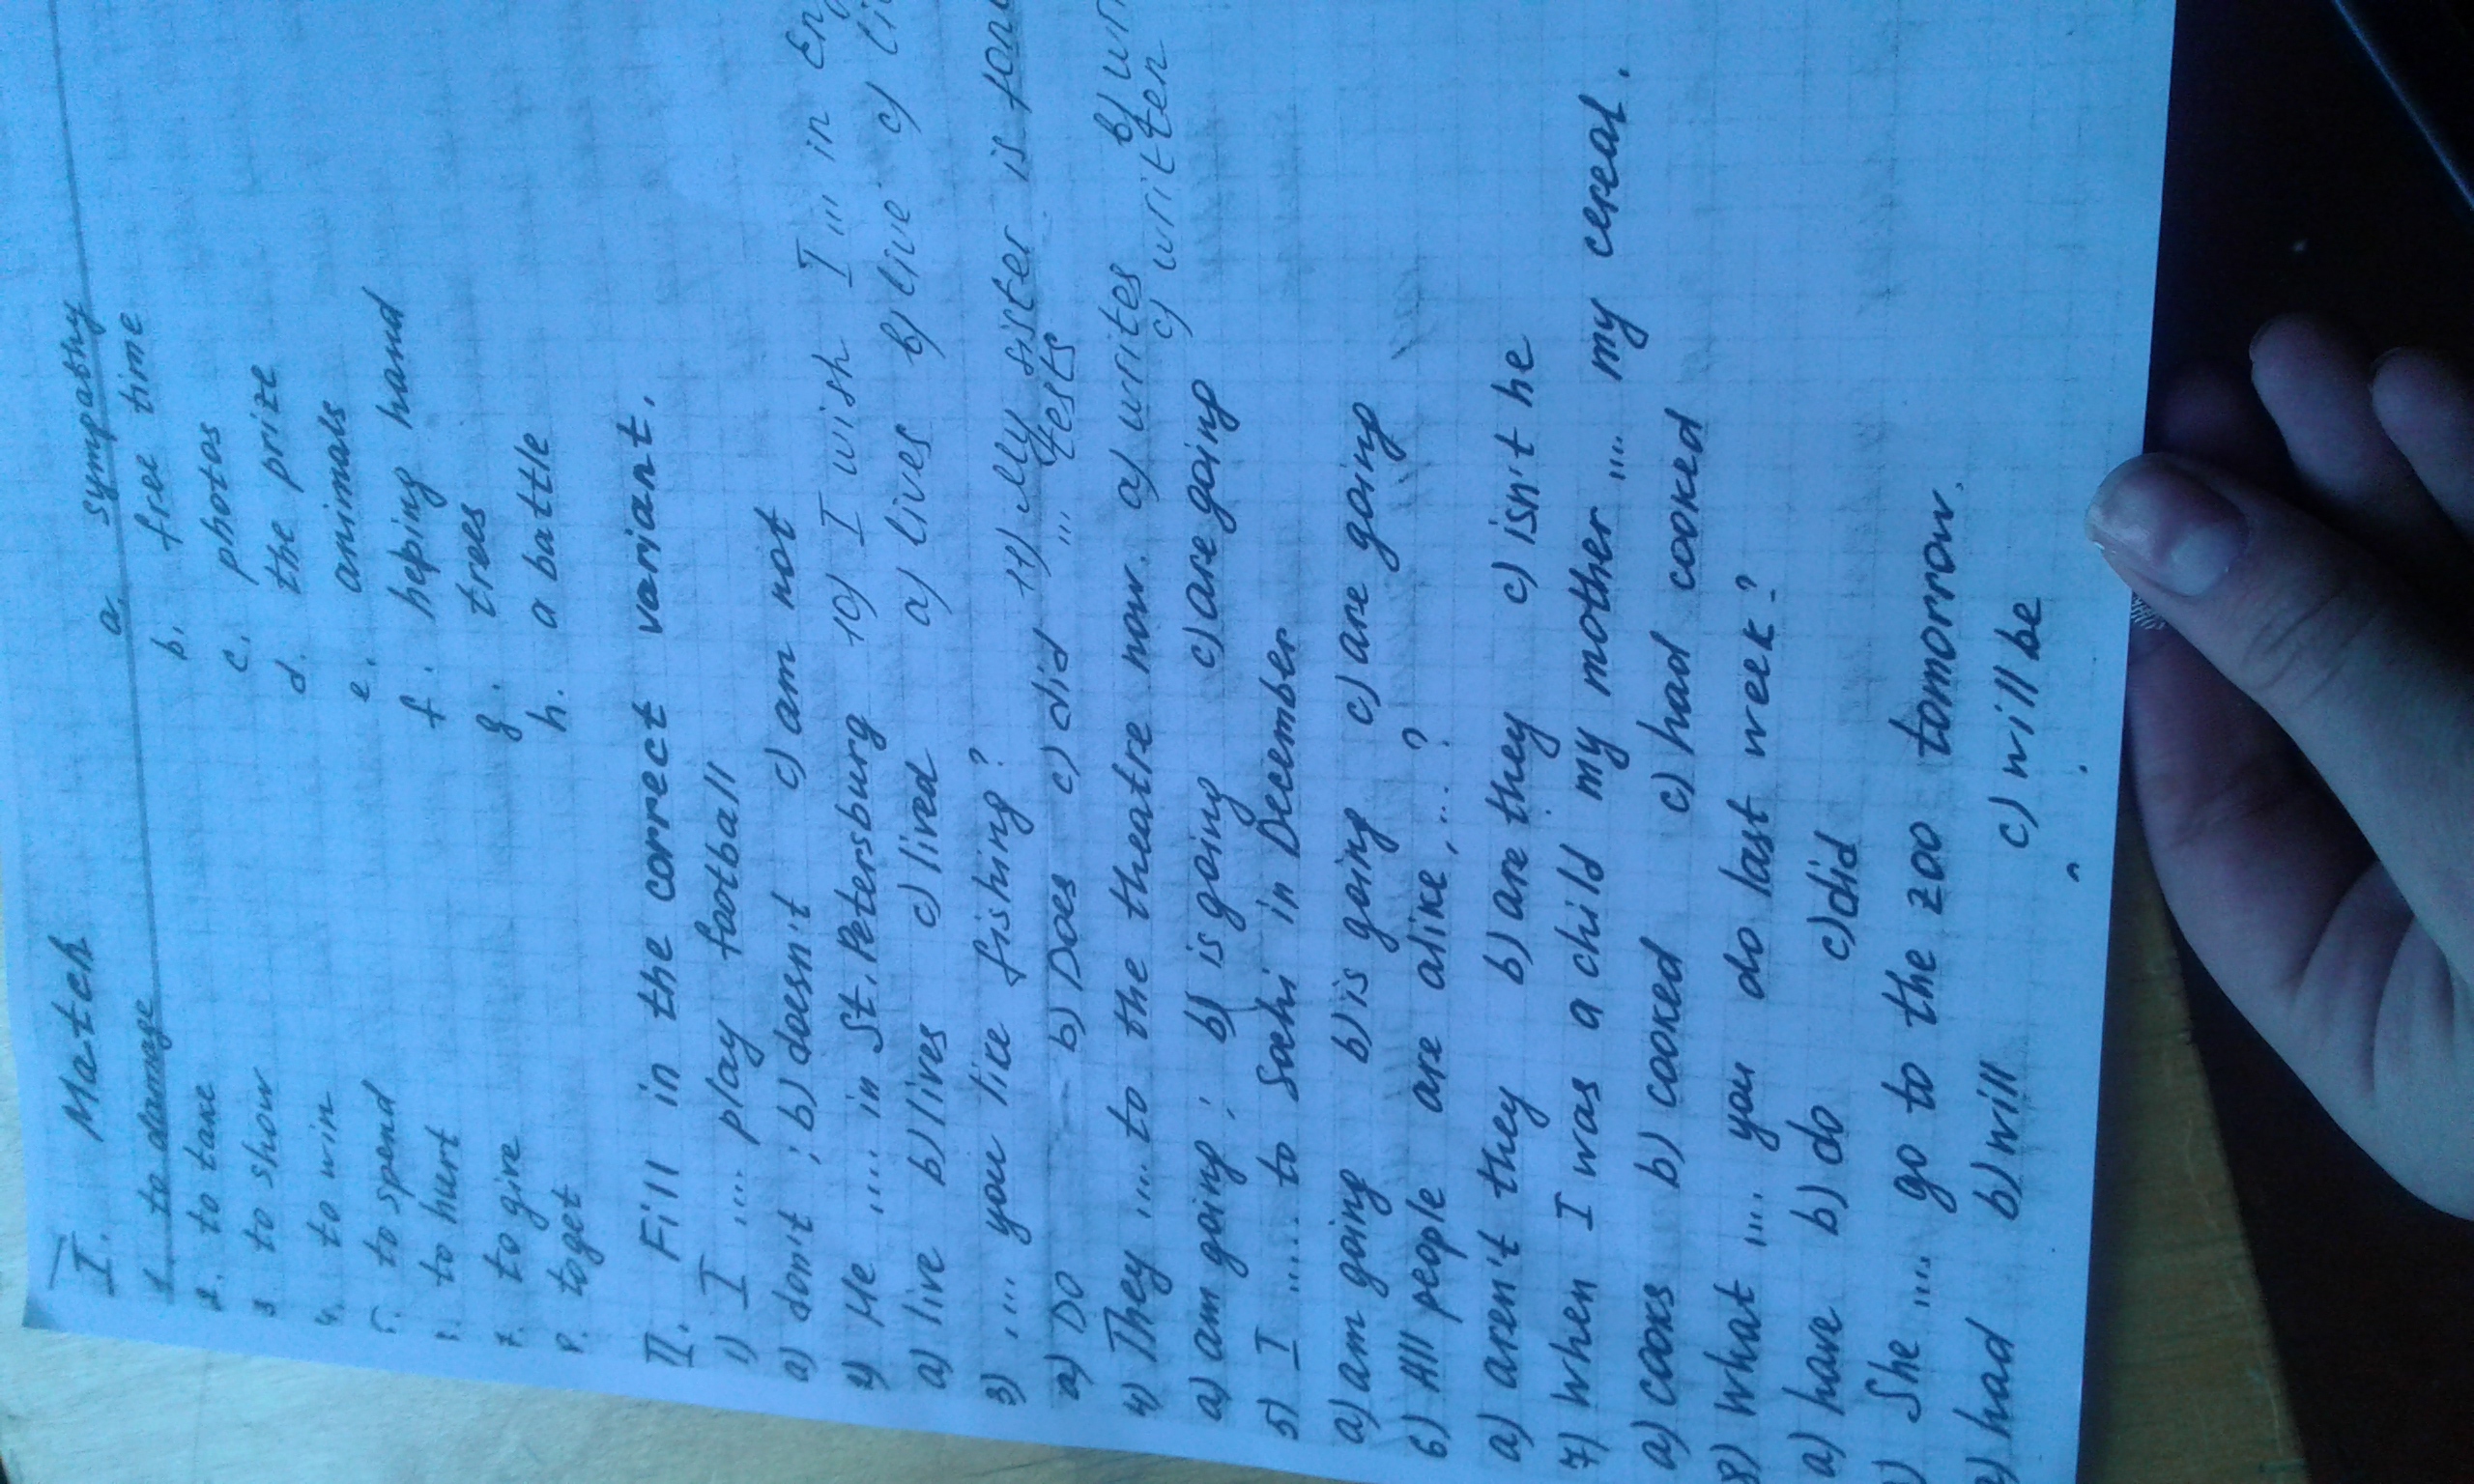 I. Match
1. to damage a. sympathy
2. to take b. free time
3. to show c. photos
4. to win d. the prize
5. to spend e. animals
to hurt f. heping hand
7. to give g. trees
8. to get h. a battle
II. Fill in the correct variant.
1) I .... play football
a) don't ; b) doesn't c) am not
2) He ..... in St. Petersburg
a) live b) lives c) lived
3) .... you like fishing?
a) Do b) Does c) did
4) They .... to the theatre now.
a) am going ; b) is going c) are going
5) I ..... to Sochi in December
a) am going b) is going c) are going
6) All people are alike, ...?
a) aren't they b) are they c) isn't he
7) When I was a child my mother .... my cereal.
a) cooks b) cooked c) had cooked
8) What .... you do last week?
a) have b) do c) did
) She .... go to the zoo tomorrow.
a) had b) will c) will be
10) I wish I ... in
a) lives b) live c)
11) My sister is
... tests
a) writes b)
c) written